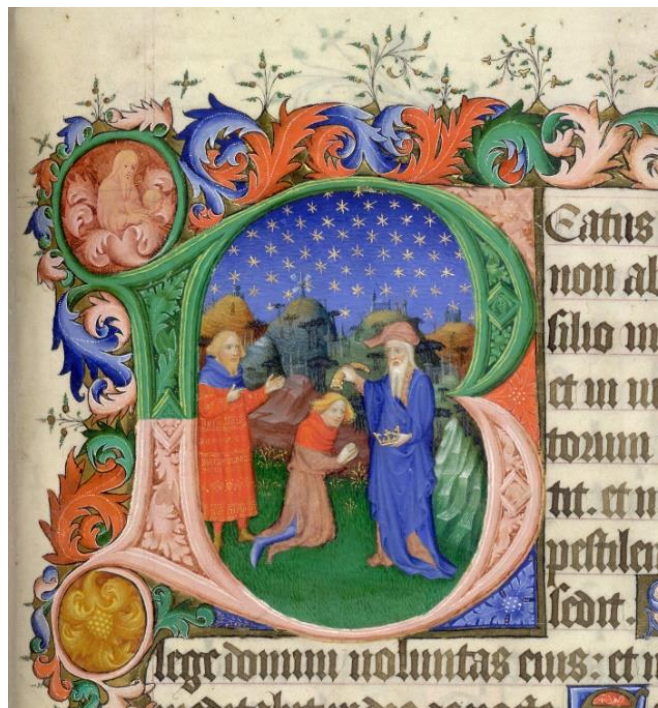 BEatus
non ab
silio im
et in
torum
tit. et
pestilen
sedit.
lege domini uoluntas eius: et